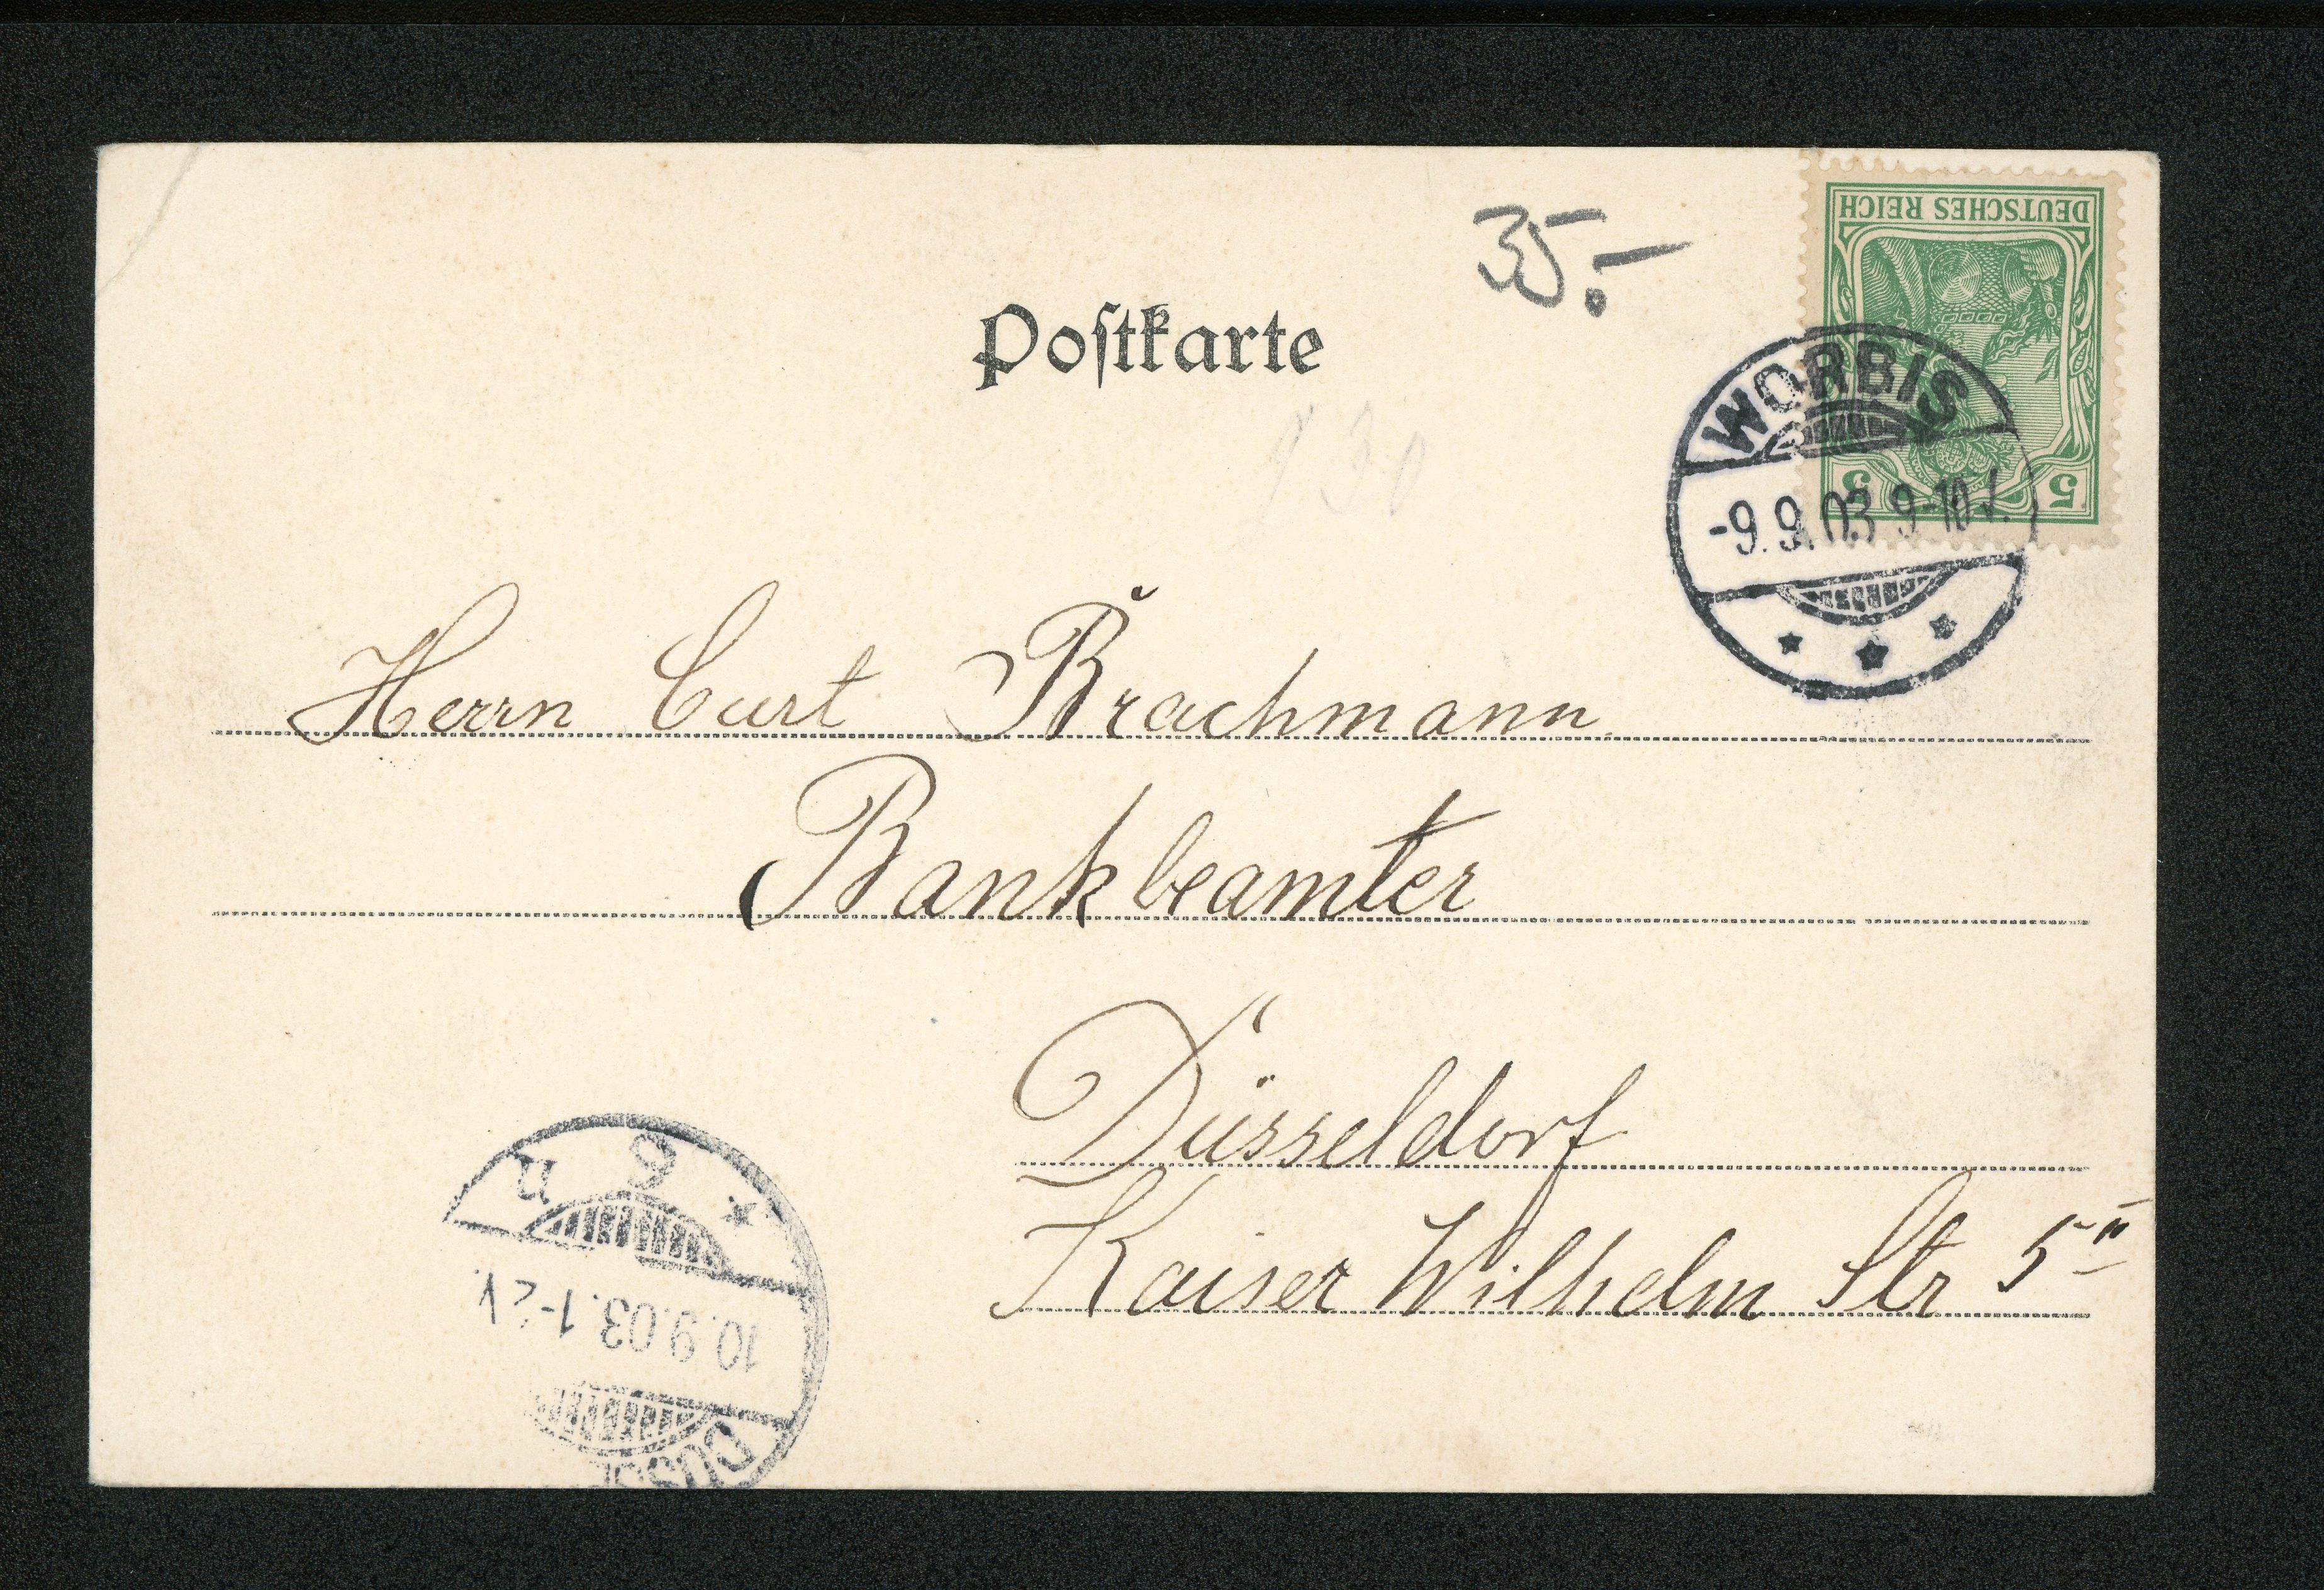 DEUTSCHES REICH
5 5
35.-
Postkarte
WORBIS
-9.9.03 9-10V.
Herrn Curt Brachmann
Bankbeamter
Düsseldorf
Kaiser Wilhelm Str 5 II
10.9.03.1-2V.